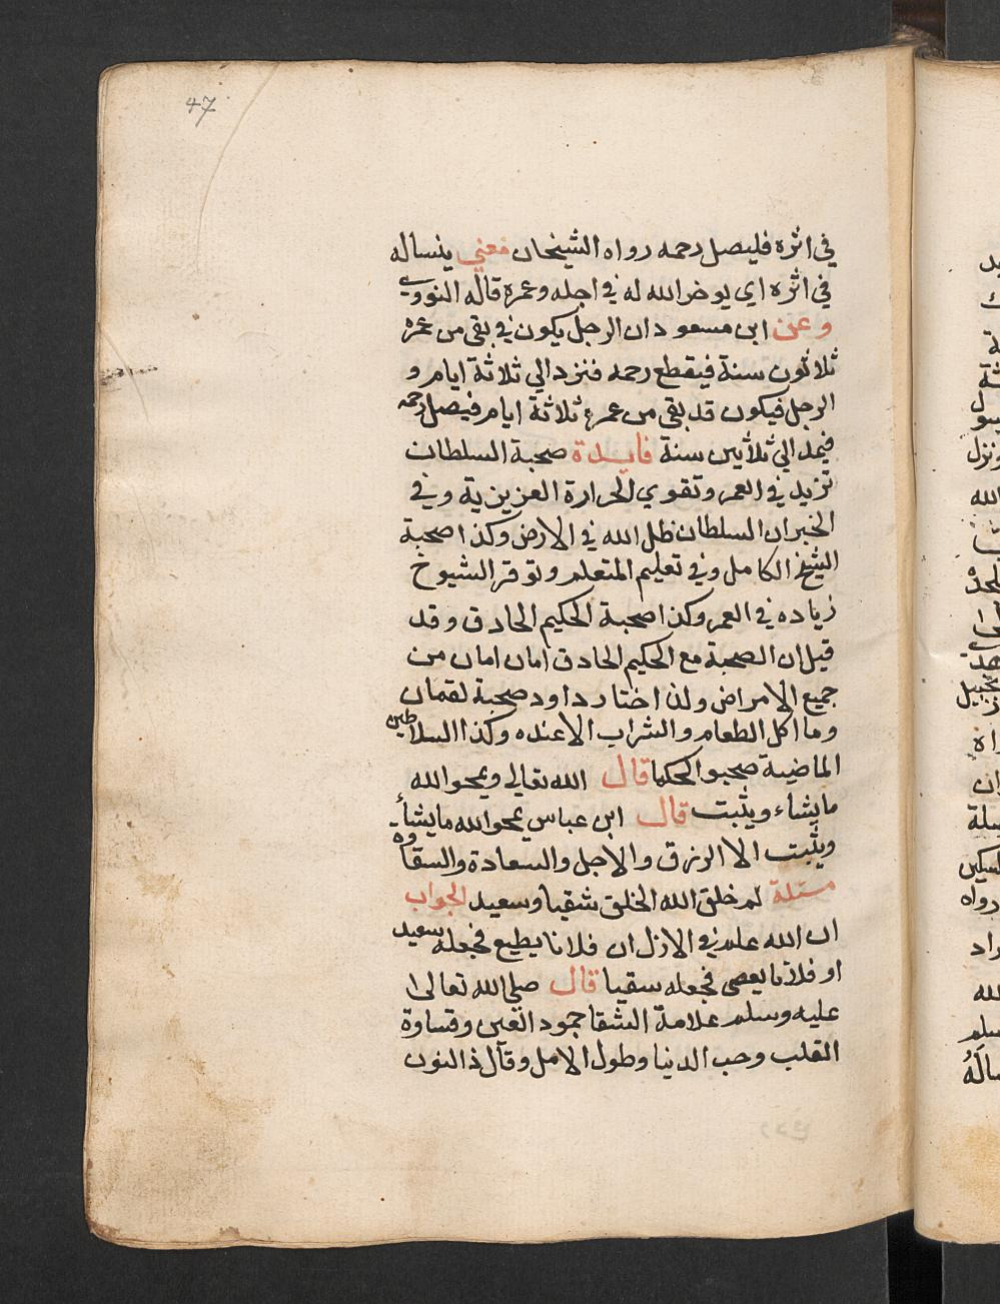 47
في اثره فليصل رحمه رواه الشيخان فمعني ينساله
في اثره اي يوخر الله له في اجله وعمره قاله النووي
وعن ابن مسعود ان الرجل يكون في بقى من عمره
ثلاثون سنة فيقطع رحمه فنزد الي ثلاثة ايام و
الرجل فيكون قد بقى من عمره ثلاثة ايام فيصل رحمه
فيمد الي ثلاثين سنة فايدة صحبة السلطان
تزيد في العمر وتقوي الحرارة العزيزية وفي
الخبر ان السلطان ظل الله في الارض وكذا صحبة
الشيخ الكامل وفي تعليم المتعلم وتوقر الشيوخ
زياده في العمر وكذا صحبة الحكيم الحادق وقد
قيل ان الصحبة مع الحكيم الحادق امان امان من
جميع الامراض ولذا اختار داود صحبة لقمان
وما اكل الطعام والشراب الا عنده وكذا السلاطين
الماضية صحبوا الحكما قال الله تعالى ويمحوا الله
مايشاء ويثبت قال ابن عباس يمحوا الله مايشاء
ويثبت الا الرزق والاجل والسعادة والسقاوه
مسئلة لم خلق الله الخلق شقيا وسعيد الجواب
ان الله علم في الازل ان فلانا يطيع فجعله سعيد
او فلانا يعصى فجعله سقيا قال صلى الله تعالى ا
عليه وسلم علامة الشقا جمود العين وقساوة
القلب وحب الدنيا وطول الامل وقال ذالنون